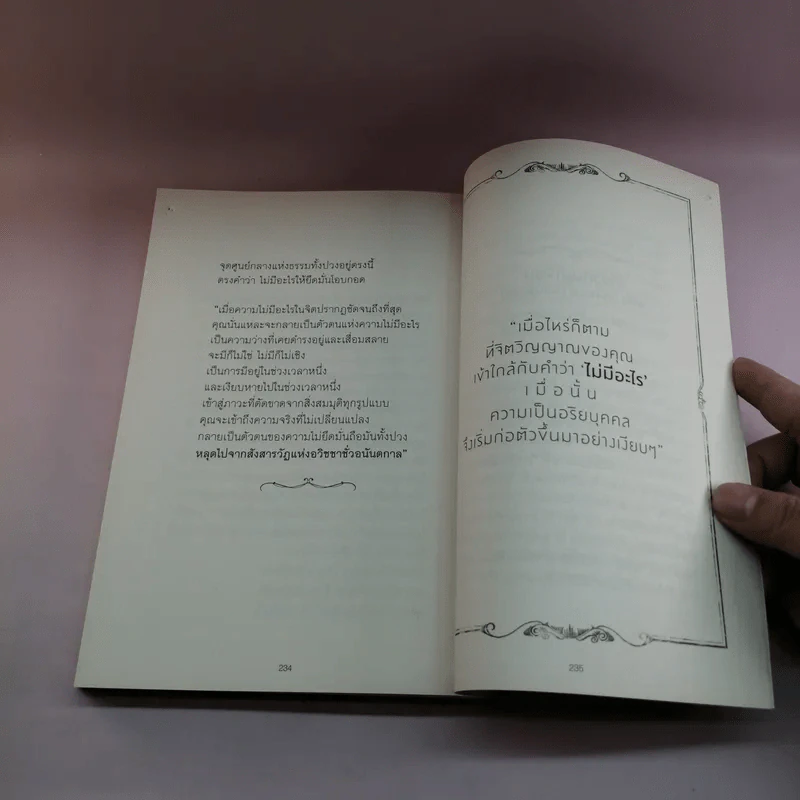 จุดศูนย์กลางแห่งธรรมทั้งปวงอยู่ตรงนี้
ตรงคำว่า ไม่มีอะไรให้ยึดมั่นโอบกอด
"เมื่อความไม่มีอะไรในจิตปรากฏชัดจนถึงที่สุด
คุณนั่นแหละจะกลายเป็นตัวตนแห่งความไม่มีอะไร
เป็นความว่างที่เคยดำรงอยู่และเสื่อมสลาย
จะมีก็ไม่ใช่ ไม่มีก็ไม่เชิง
เป็นการมีอยู่ในช่วงเวลาหนึ่ง
และเงียบหายไปในช่วงเวลาหนึ่ง
เข้าสู่ภาวะที่ตัดขาดจากสิ่งสมมุติทุกรูปแบบ
คุณจะเข้าถึงความจริงที่ไม่เปลี่ยนแปลง
กลายเป็นตัวตนของความไม่ยึดมั่นถือมั่นทั้งปวง
หลุดไปจากสังสารวัฏแห่งอวิชชาชั่วอนันตกาล"
234
"เมื่อไหร่ก็ตาม
ที่จิตวิญญาณของคุณ
เข้าใกล้กับคำว่า 'ไม่มีอะไร'
เ มื่ อ นั้ น
ความเป็นอริยบุคคล
จึงเริ่มก่อตัวขึ้นมาอย่างเงียบๆ"
235